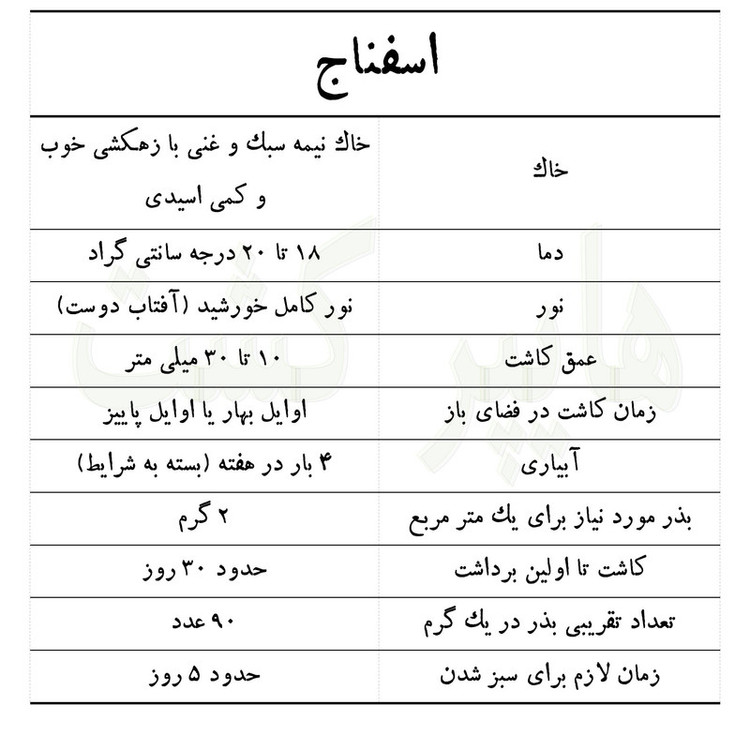 اسفناج
خاک
خاک نیمه سبک و غنی با زهکشی خوب
و کمی اسیدی
دما
۱۸ تا ۲۰ درجه سانتی گراد
نور
نور کامل خورشید (آفتاب دوست)
عمق کاشت
۱۰ تا ۳۰ میلی متر
زمان کاشت در فضای باز
اوایل بهار یا اوایل پاییز
آبیاری
۴ بار در هفته (بسته به شرایط)
بذر مورد نیاز برای یک متر مربع
۲ گرم
کاشت تا اولین برداشت
حدود ۳۰ روز
تعداد تقریبی بذر در یک گرم
۹۰ عدد
زمان لازم برای سبز شدن
حدود ۵ روز
هایپر کشت